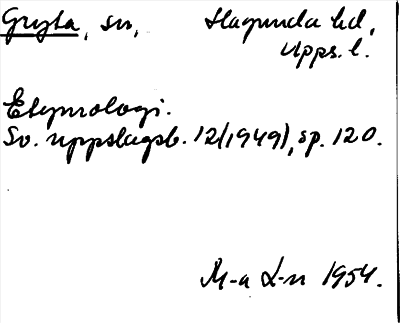 Gryta, sn, Hagunda hd,
Upps. l.
Etymologi.
Sv. uppslagsb. 12(1949), sp. 120.
M-a L-n 1954.